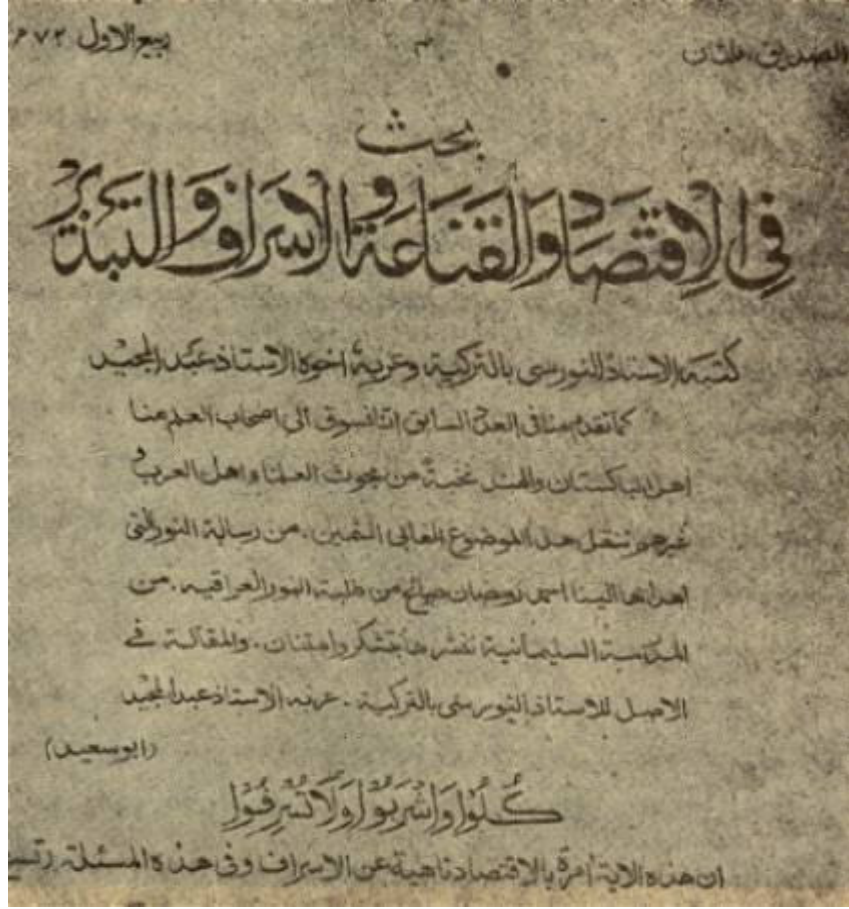 الصديق، ملتان
٣
ربيع الاول ٧٢
بحث
فِي الْاِقْتِصَادِ وَالْقَنَاعَةِ وَالْاِسْرَافِ وَالتَّبْذِيرِ
كتبه الاستاذ النورسى بالتركية وعربه اخوه الاستاذ عبد المجيد
كما تقدم منا فى العدد السابق اننا نسوق الى اصحاب العلم منا
اهل الباكستان والهند نخبة من بحوث العلماء واهل العرب و
غيرهم ننقل هذا الموضوع الغالى الثمين. من رسالة النور التى
اهداها الينا احمد رمضان من طلبة النور العراقيه. من
السليمانية ننشرها بتشكر وامتنان. والمقالة فى
الاصل للاستاذ النورسى بالتركية. عربه الاستاذ عبد المجيد
(ابو سعيد)
كُلُوا وَاشْرَبُوا وَلَا تُسْرِفُوا
ان هذه الاية امرة بالاقتصاد ناهية عن الاسراف وفى هذه المسئلة